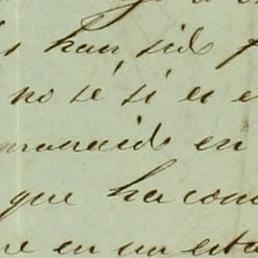 han sido
no sé si es e
en
que ha com
en un esta